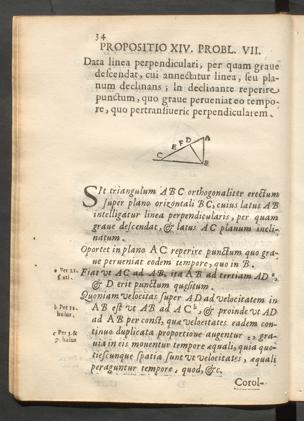 34
PROPOSITIO XIV. PROBL. VII.
Data linea perpendiculari, per quam graue
descendat, cui annectatur linea, seu pla-
num declinans; In declinante reperire
punctum, quo graue perueniat eo tempo-
re, quo pertransiuerit perpendicularem.
A
E F D
C
B
SIt triangulum ABC orthogonaliter erectum
super plano orizontali BC, cuius latus AB
intelligatur linea perpendicularis, per quam
graue descendat, & latus AC planum incli-
natum.
Oportet in plano AC reperire punctum quo gra-
ue perueniat eodem tempore, quo in B.
a Per 11.
Fiat vt AC ad AB, ita AB ad tertiam AD a,
& D erit punctum quæsitum.
Quoniam velocitas super AD ad velocitatem in
b Per
huius.
AB est vt AB ad AC b, & proinde vt AD
ad AB per const, quæ velocitates eadem con-
c Per
p. huius
tinuo duplicata proportione augentur c, gra-
uia in eis mouentur tempore æquali, quia quo-
tiescunque spatia sunt vt velocitates, æquali
peraguntur tempore, quod, &c.
Corol-